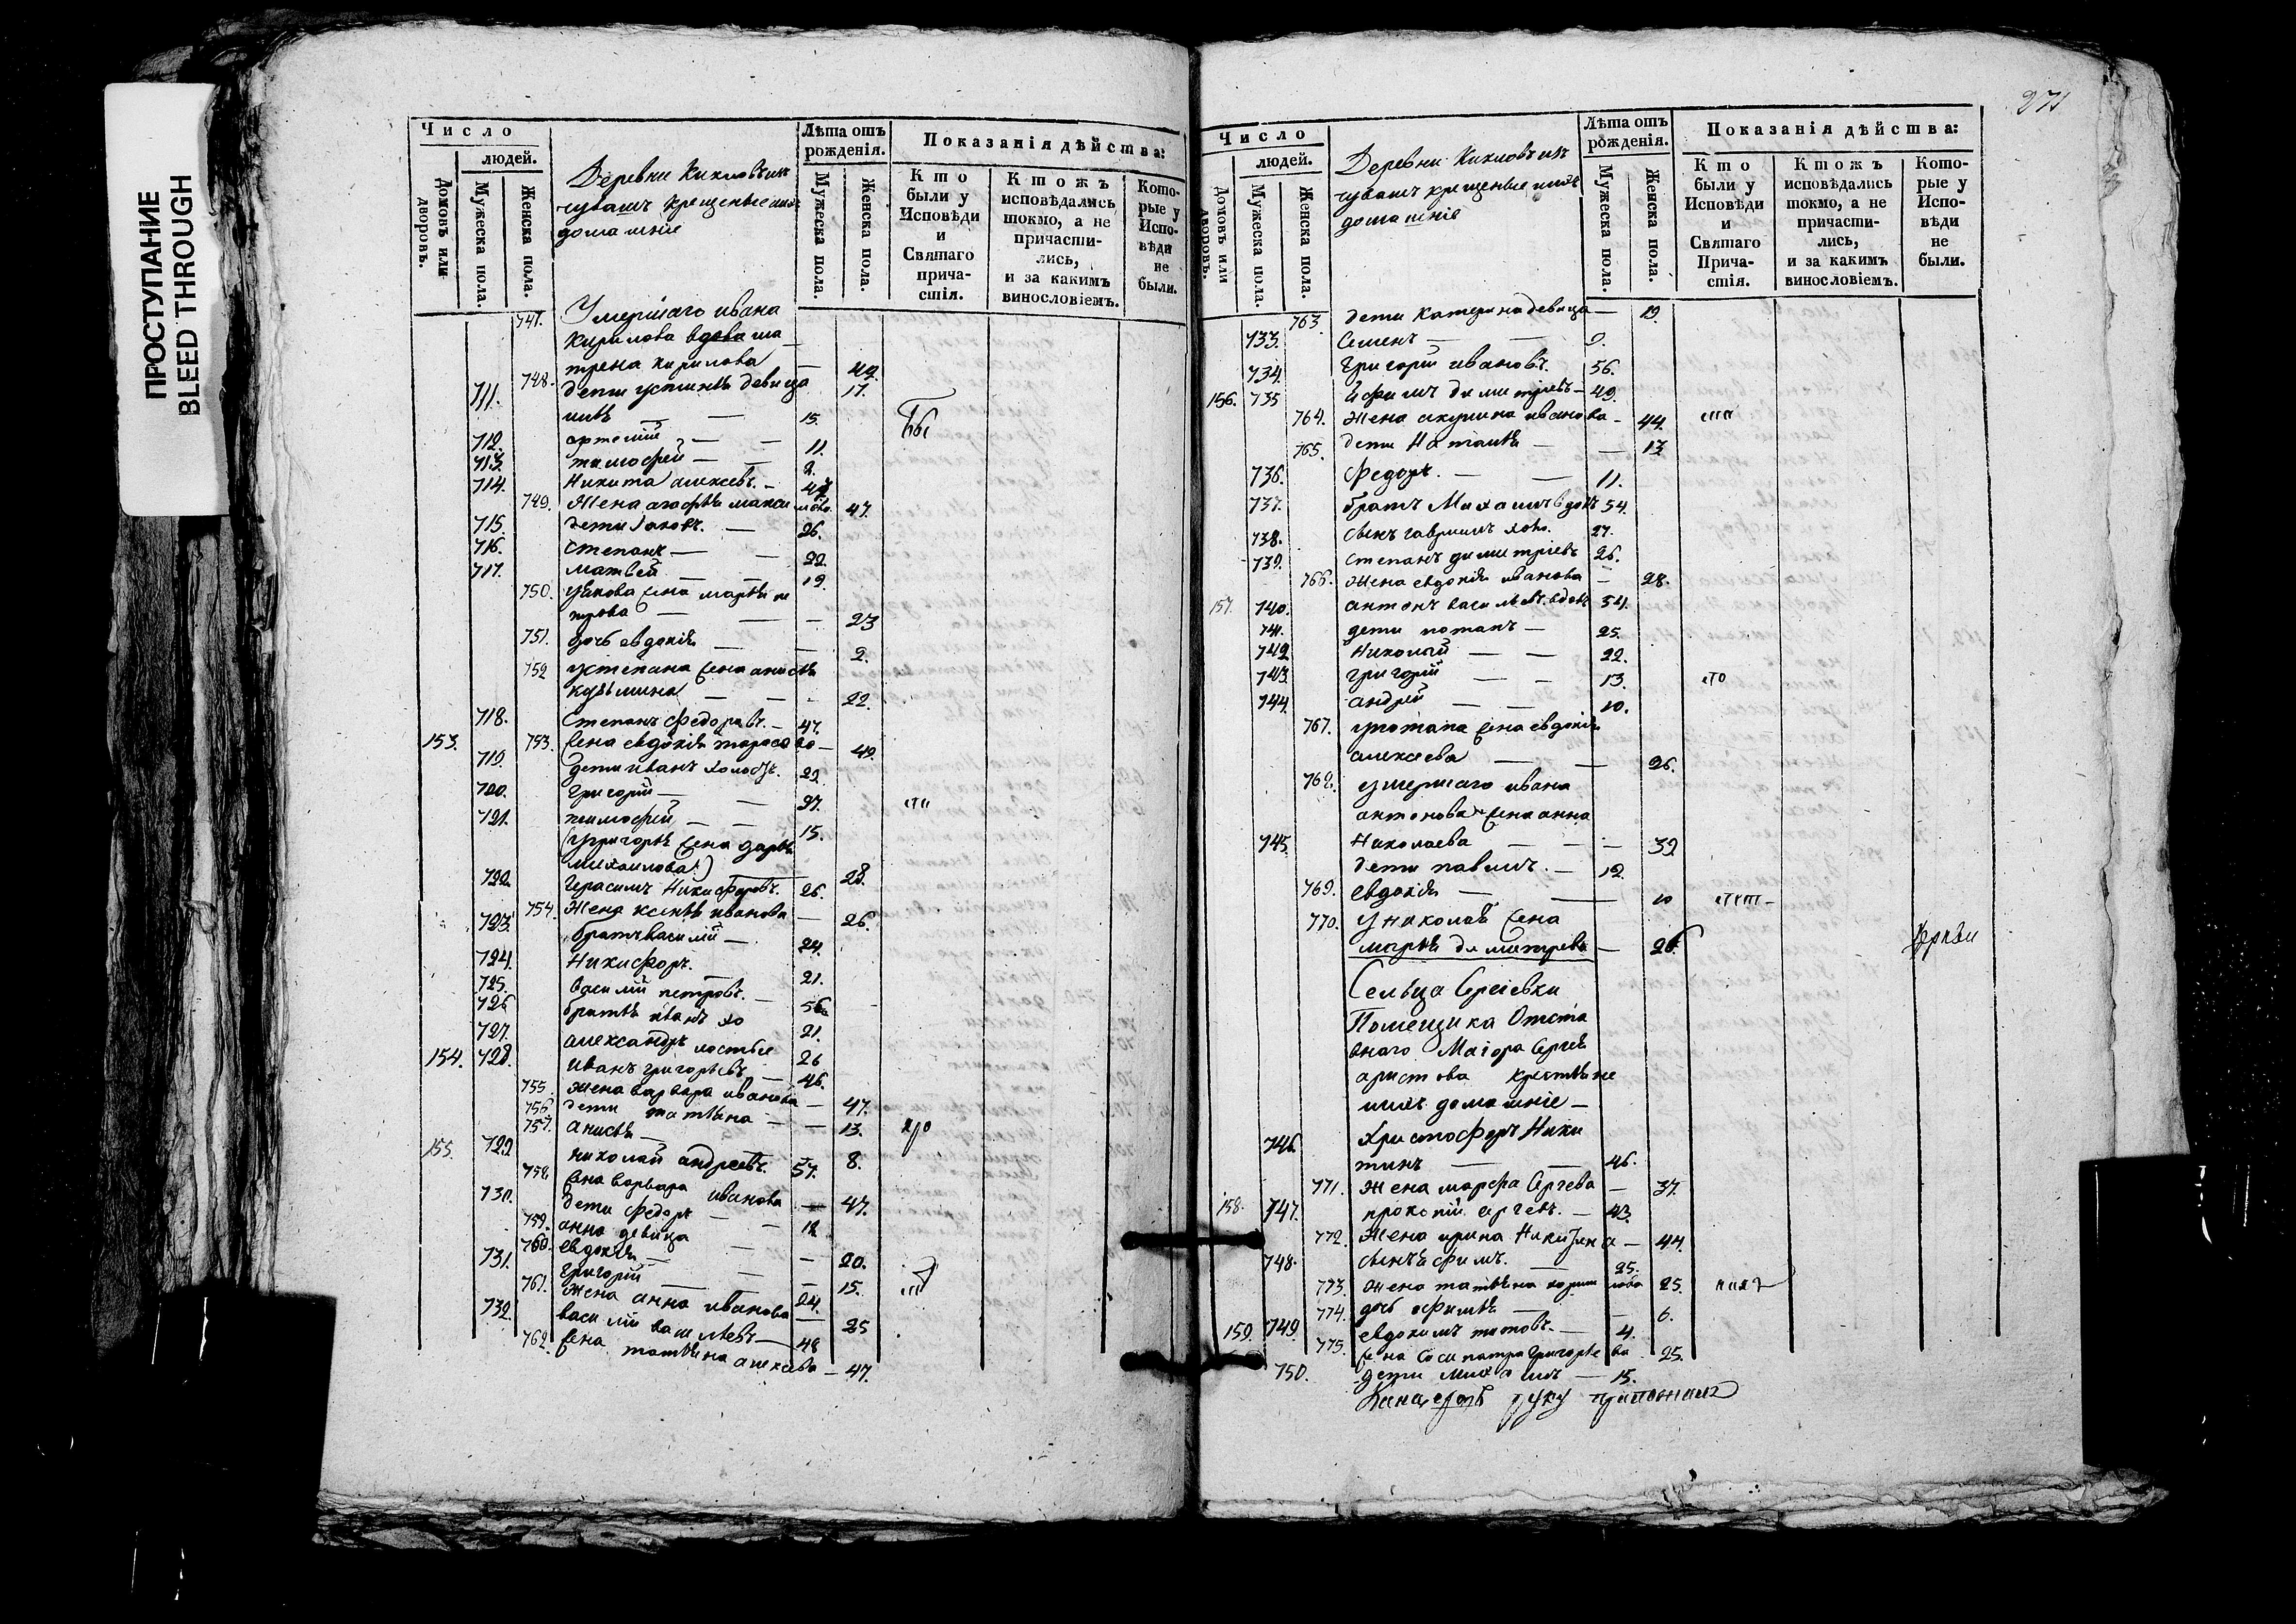 ПРОСТУПАНИЕ
BLEED THROUGH
271
Число
людей.
Домовъ или дворовъ.
Мужеска пола.
Женска пола.
Деревни
чувашъ крещеные ихъ
домашніе
Лѣта отъ рожденія.
Мужеска пола.
Женска пола.
Показанія дѣйства:
Кто были у Исповѣди и Святаго причастія.
Ктожъ исповѣдались токмо, а не причастились, и за какимъ винословіемъ.
Которые у Исповѣди не были.
747. Умершаго ивана
Кирилова вдова ма
трена кирилова — 49.
748. дети устинья девица 17.
711. 15.
712. артемій — — 11.
713. тимофей — — 2.
714. Никита алексевъ. —
749. Жена агафья макси мова. 47.
715. дети яковъ. — 26.
716. степанъ — — 22.
717. матвей — — 19.
750. уякова жена марья пе
трова — — 23
751. дочь евдокія — — 2.
752 устепана жена анисья
кузьмина — — 22.
718. Степанъ федоровъ. — 47.
153. 753. жена евдокія тарасова — 49.
719. дети иванъ холостъ. 29.
720. григорій — — 27.
721. тимофей — — 15.
(угригорья жена дарья
михаилова) 28.
722. Герасимъ Никифоровъ. 26.
754. Жена ксенья иванова — 26.
723. братъ василій — 24.
724. Никифоръ. — 21.
725. василій петровъ. — 56
726 братья иванъ хо 21.
727. александръ лостые 26
154. 728. иванъ григорьевъ — 46.
755. жена варвара иванова — 47.
756. дети татьяна — — 13.
757. анисья — 8.
155. 729 николай андреевъ. 57.
758. жена варвара иванова — 47.
730. дети федоръ — — 18
759. анна девица — 20.
760. евдокія — — 15.
731. григорій — — 24.
761. жена анна иванова — 25
732. василій васильевъ — 48
762. жена татьяна алексева — 47.
Число
людей.
Домовъ или дворовъ.
Мужеска пола.
Женска пола.
Деревни
чувашъ крещеные ихъ
домашніе
Лѣта отъ рожденія.
Мужеска пола.
Женска пола.
Показанія дѣйства:
Кто были у Исповѣди и Святаго Причастія.
Ктожъ исповѣдались токмо, а не причастились, и за какимъ винословіемъ.
Которые у Исповѣди не были.
763. дети Катерина девица — 19.
733. Семенъ — — 9.
734. Григорій ивановъ. 56.
156. 735 Ефимъ димитріевъ — 49.
764. Жена акулина иванова — 44.
765. дети Наталья — — 13
736. Федоръ. — — 11.
737. братъ Михаилъ вдовъ 54.
738. сынъ гавриилъ холо. 27.
739. степанъ димитріевъ 26.
766. жена евдокія иванова — 28.
157. 740. антонъ васильевъ вдовъ 54.
741. дети потапъ — 25.
742 Николай — — 22.
743. григорій — — 13.
744. андрей — — 10.
767. употапа жена евдокія
алексеева — — 26.
768. умершаго ивана
антонова жена анна
Николаева — — — 39
745. дети павелъ. — 12.
769. евдокія — — 10
770. У николая жена
марья димитрева — 26.
Сельца Сергіевки
Помещика Отста
внаго Маіора Сергея
аристова крестьяне
ихъ домашніе —
746. Христофоръ Ники
тинъ — — 46.
771. Жена марфа Сергева — 37.
158. 747. прокопій сергевъ. — 43.
772. Жена ирина Никитина — 44.
748. сынъ ефимъ. — 25.
773. жена татьяна 25.
774. дочь — — 6.
159. 749. евдокимъ титовъ. — 4.
775. жена Сосипатра григорьева 25.
750. дети Михаилъ — 15.
руку приложилъ